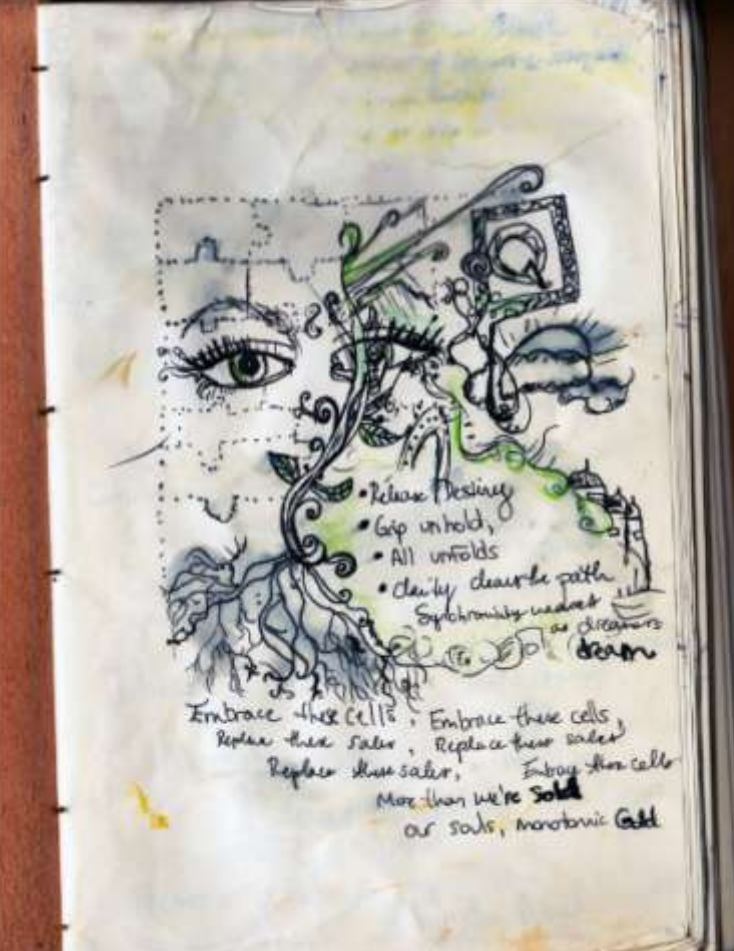 Q
• Release Destiny
• Grip unhold,
• All unfolds
• the path
Synchronicity
as dreamers
dream
Embrace these cells, Embrace these cells,
Replace these sales, Replace these sales
Replace these sales, Embrace these cells
More than we're Sold
our souls, monotomic Gold